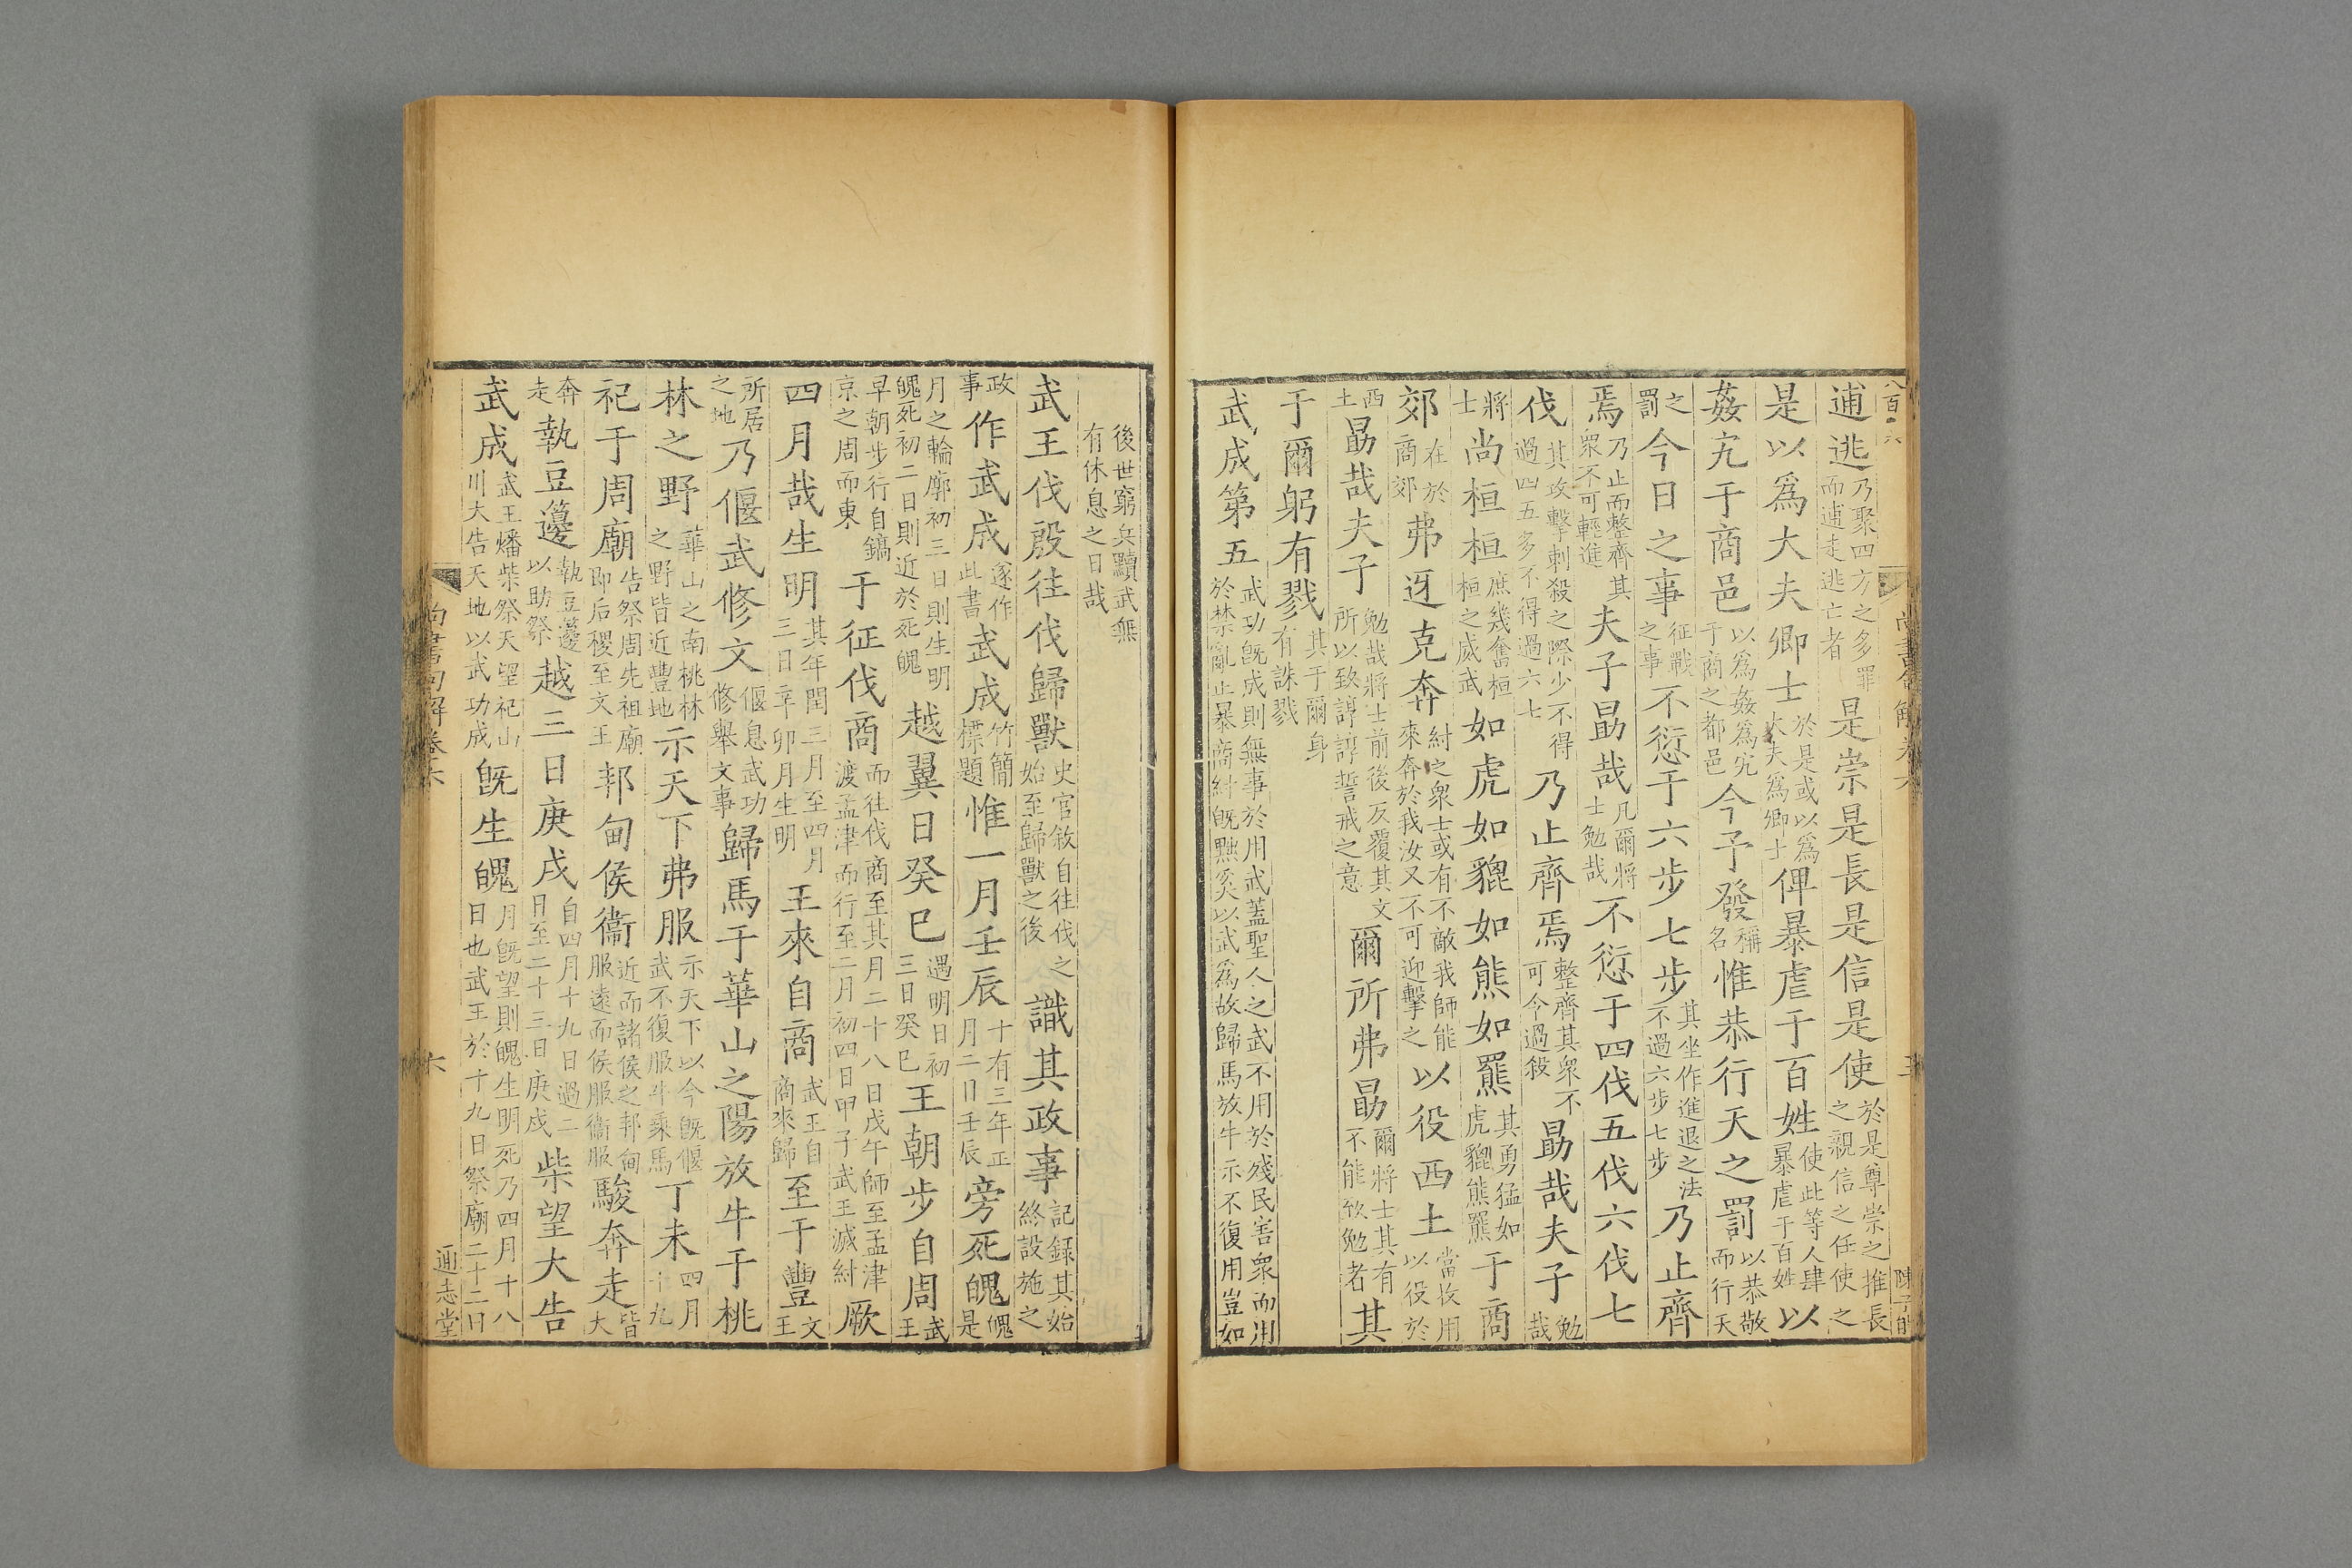 逋逃乃聚四方之多罪而逋走逃亡者是崇是長是信是使於是尊崇之推長之親信之任使之
是以爲大夫卿士於是或以爲大夫爲卿士俾暴虐于百姓使此等人肆暴虐于百姓以
姦宄于商邑以爲姦爲宄于商之都邑今予發稱名惟恭行天之罰以恭敬而行天
之罰今日之事征戰之事不愆于六步七步其坐作進退之法不過六步七步乃止齊
焉乃止而整齊其衆不可輕進夫子勗哉凡爾將士勉哉不愆于四伐五伐六伐七
伐其攻擊刺殺之際少不得過四五多不得過六七乃止齊焉整齊其衆不可令過殺勗哉夫子勉哉
將士尚桓桓庶幾奮桓桓之威武如虎如貔如熊如羆其勇猛如虎貔熊羆于商
郊在於商郊弗迓克奔紂之衆士或有不敵我師能來奔於我汝又不可迎擊之以役西土當收用以役於
西土勗哉夫子勉哉將士前後反覆其文所以致諄諄誓戒之意爾所弗勗爾將士其有不能致勉者其
于爾躬有戮其于爾身有誅戮
武成第五武功旣成則無事於用武蓋聖人之武不用於殘民害衆而用於禁亂止暴商紂旣黜奚以武爲故歸馬放牛示不復用豈如
後世窮兵黷武無有休息之日哉
武王伐殷往伐歸獸史官敘自往伐之始至歸獸之後識其政事記錄其始終設施之
政事作武成遂作此書武成竹簡標題惟一月壬辰十有三年正月二日壬辰旁死魄魄是
月之輪廓初三日則生明魄死初二日則近於死魄越翼日癸巳遇明日初三日癸巳王朝步自周武王
早朝步行自鎬京之周而東于征伐商而往伐商至其月二十八日戊午師至孟津渡孟津而行至二月初四日甲子武王滅紂厥
四月哉生明其年閏三月至四月三日辛卯月生明王來自商武王自商來歸至于豐文王
所居之地乃偃武修文偃息武功修舉文事歸馬于華山之陽放牛于桃
林之野華山之南桃林之野皆近豐地示天下弗服示天下以今旣偃武不復服牛乘馬丁未四月十九
祀于周廟告祭周先祖廟即后稷至文王邦甸侯衞近而諸侯之邦甸服遠而侯服衞服駿奔走皆大
奔走執豆籩執豆籩以助祭越三日庚戌自四月十九日過二日至二十三日庚戌柴望大告
武成武王燔柴祭天望祀山川大告天地以武功成旣生魄月旣望則魄生明死乃四月十八日也武王於十九日祭廟二十二日
尚書句解卷六
六
通志堂